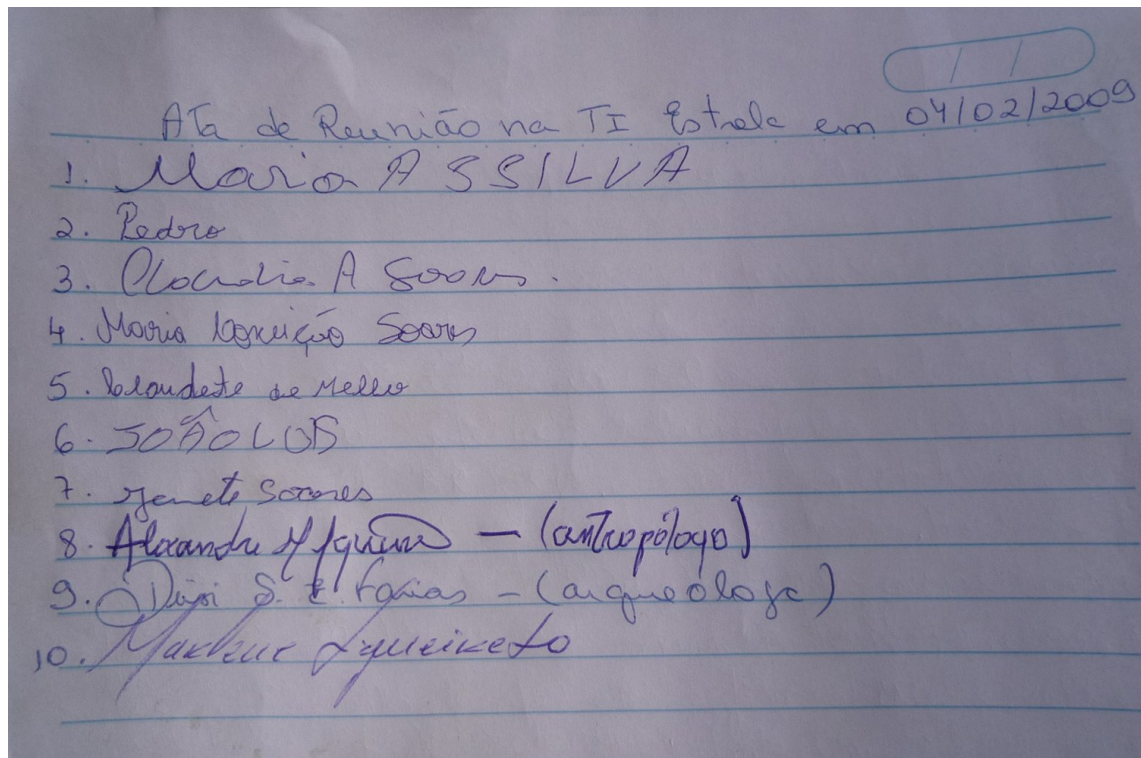 Ata de Reunião na TI Estrela em 04/02/2009
1. Maria A S SILVA
2. Pedro
3. Claudia A Soares.
4. Maria Conceição Soares
5. Claudete de Mello
6. JOÃO LUÍS
7. Janete Soares
8. Alexandre M Aquino — (antropólogo)
9. Deisi S. E. Farias - (arqueóloga)
10. Marlene